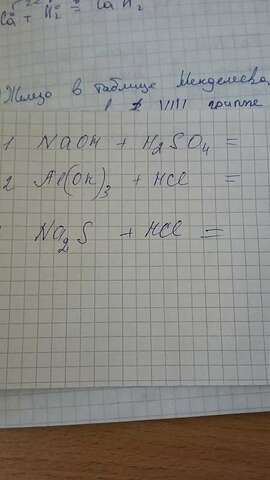 Ca + H₂ = CaH₂
Железо в таблице Менделеева
в VIIII группе
1 NaOH + H₂SO₄ =
2 Al(OH)₃ + HCl =
Na₂S + HCl =